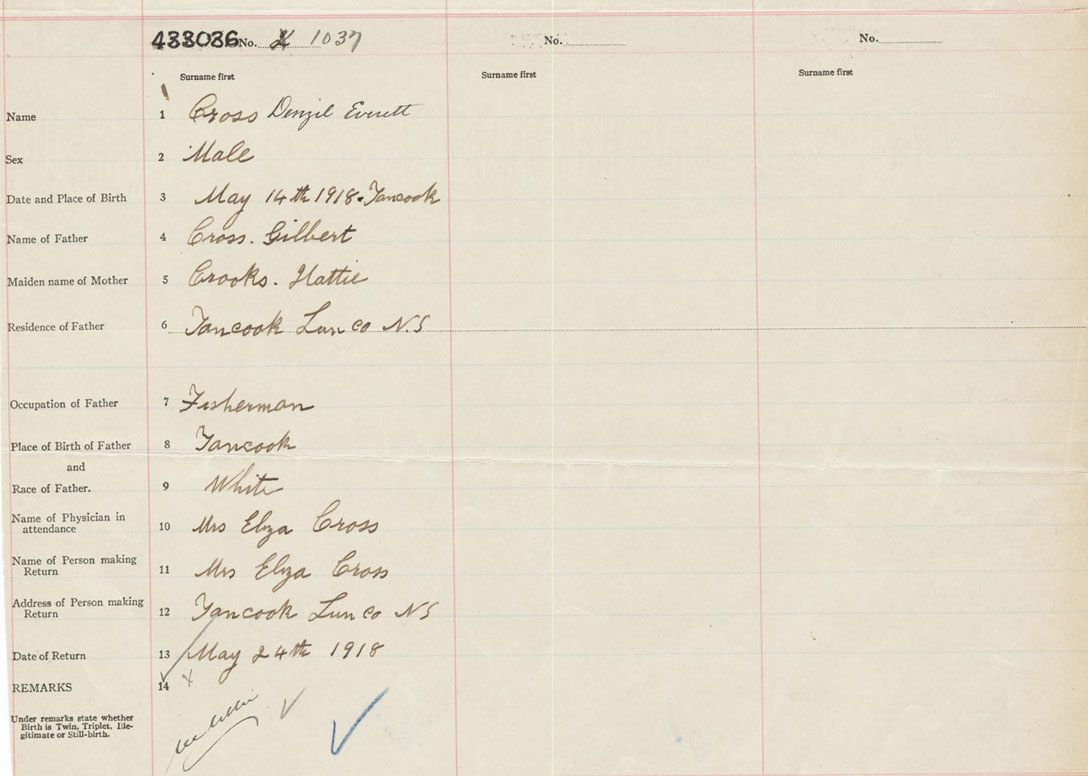 433036 No. 1037 No. No.
Surname first Surname first Surname first
Name 1 Cross Denzil Everett
Sex 2 Male
Date and Place of Birth 3 May 14th 1918. Tancook
Name of Father 4 Cross. Gilbert
Maiden name of Mother 5 Crooks. Hattie
Residence of Father 6 Tancook Lun co N.S
Occupation of Father 7 Fisherman
Place of Birth of Father 8 Tancook
and
Race of Father. 9 White
Name of Physician in attendance 10 Mrs Eliza Cross
Name of Person making Return 11 Mrs Eliza Cross
Address of Person making Return 12 Tancook Lun co NS
Date of Return 13 May 24th 1918
REMARKS 14 x
Under remarks state whether
Birth is Twin, Triplet, Ille-
gitimate or Still-birth.